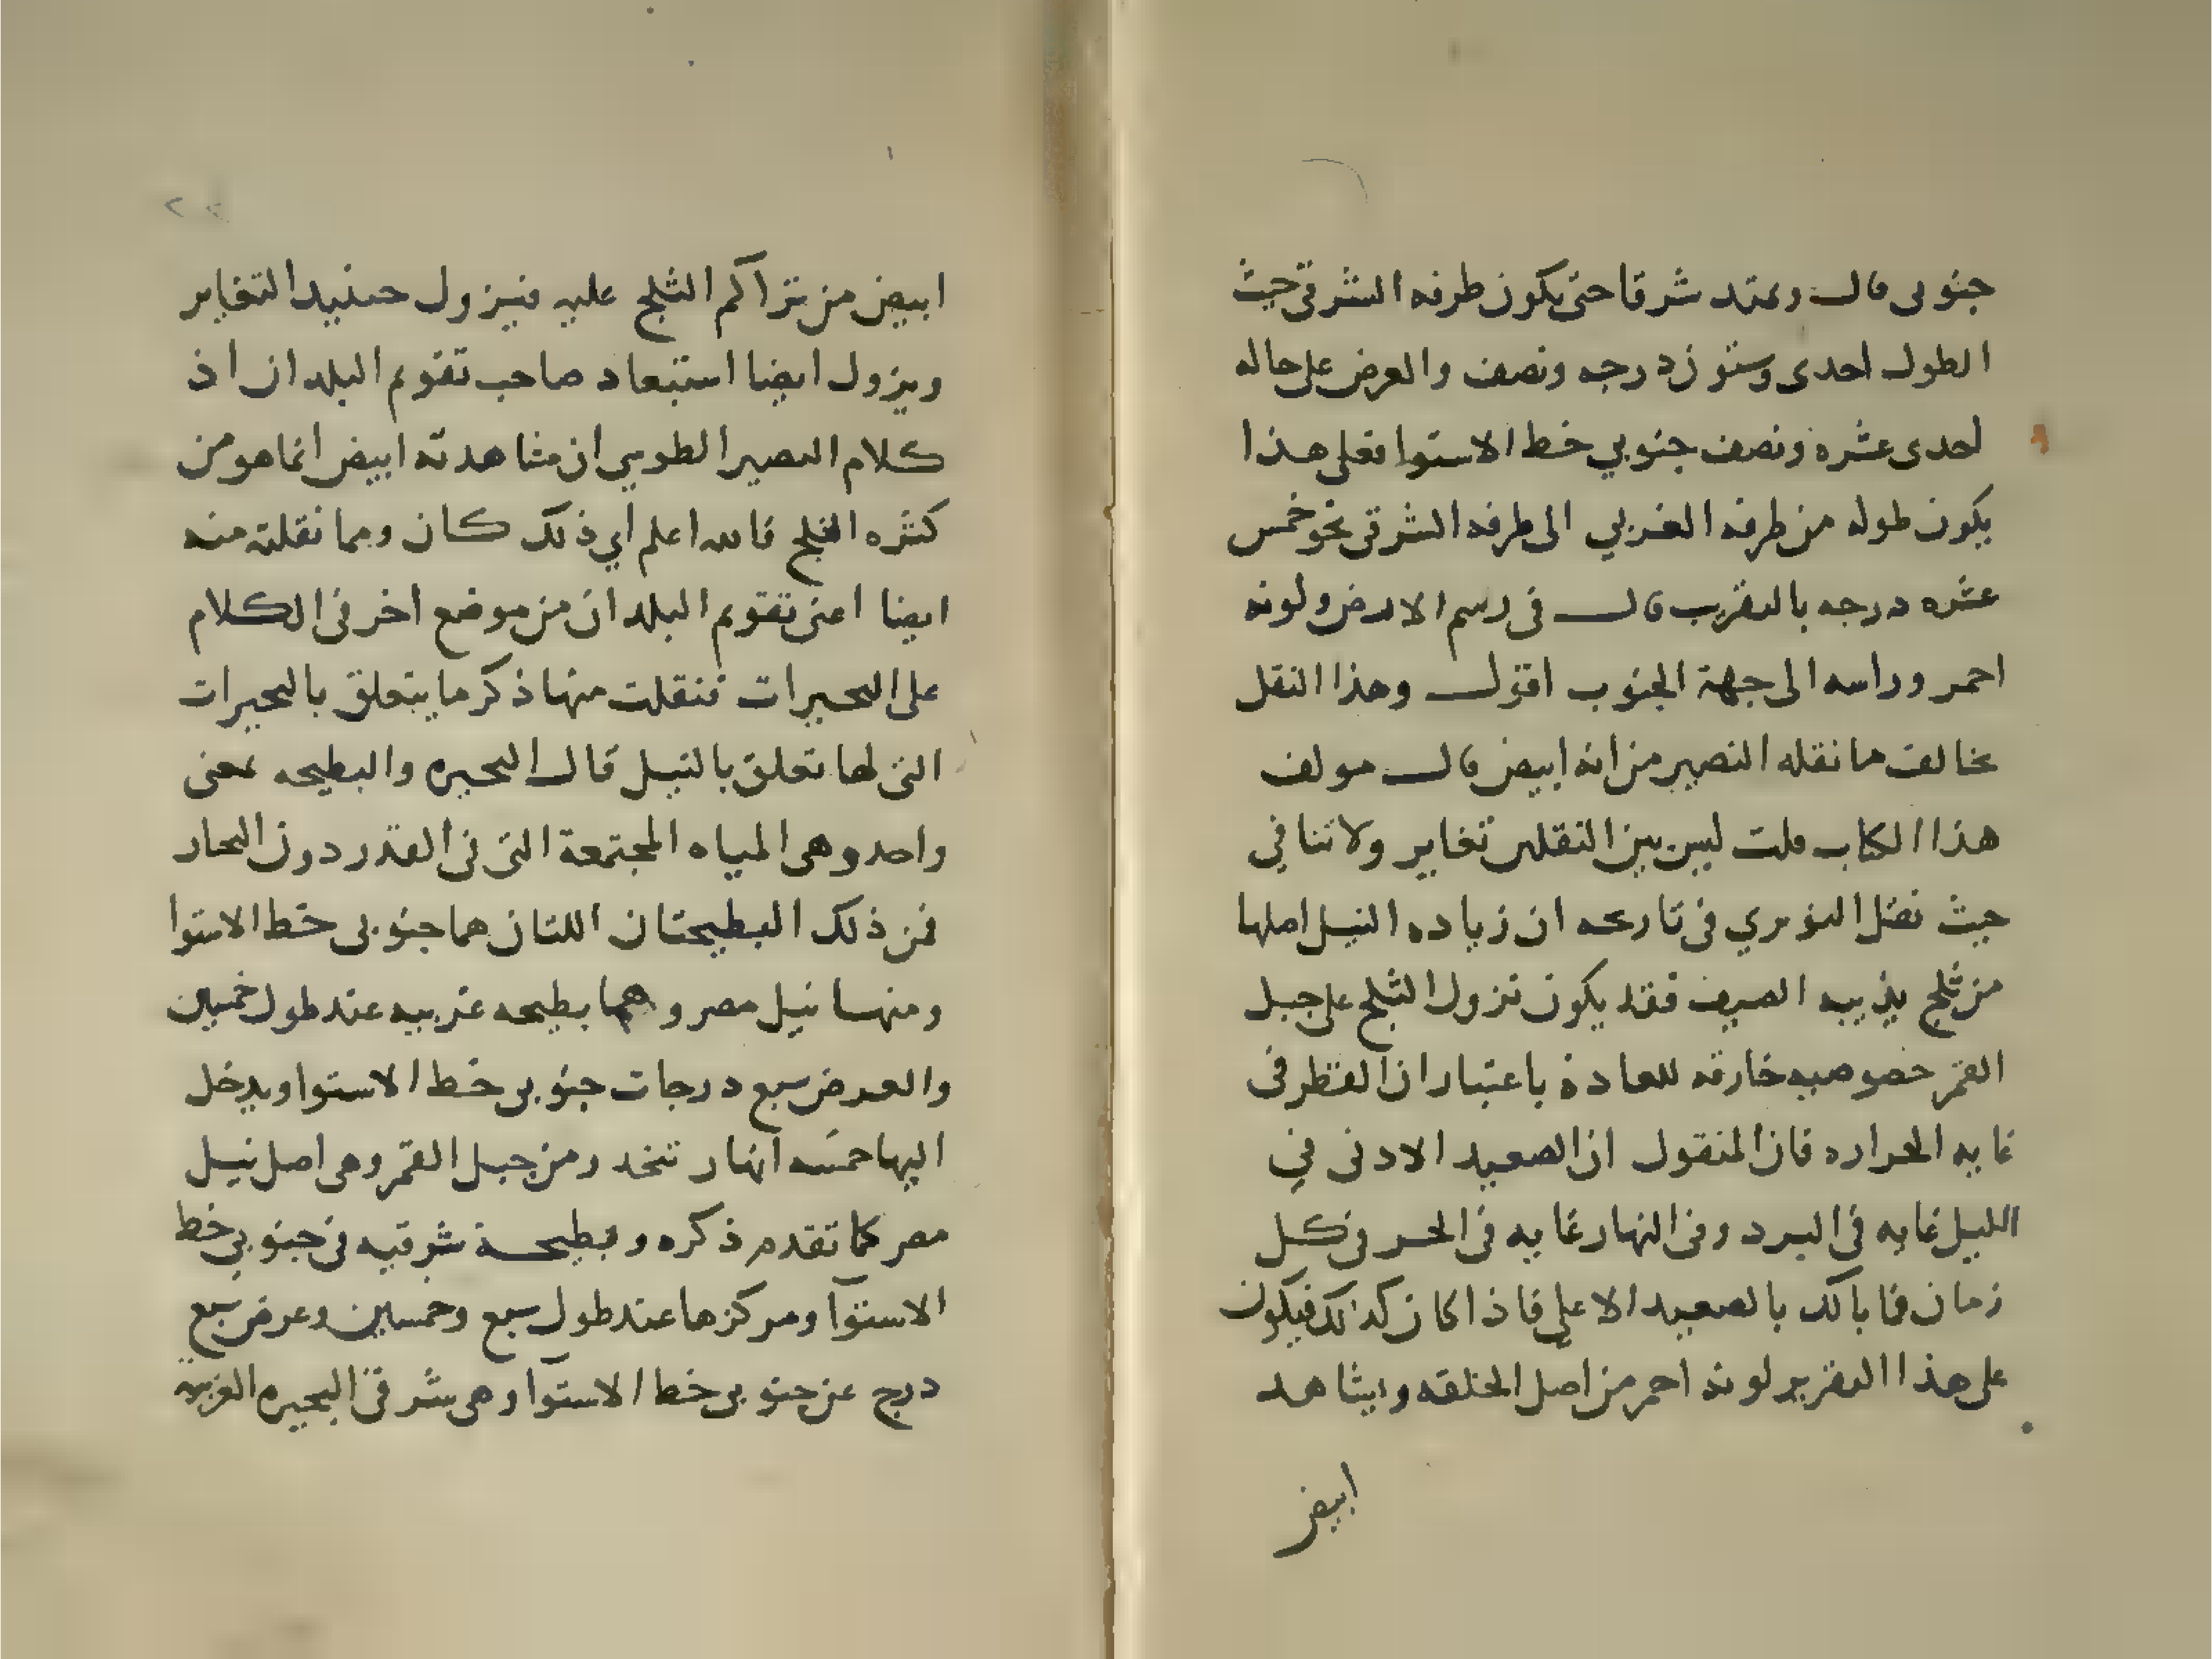 جنوبى قال ويمتد شرقا حتى يكون طرفه الشرقى حيث
الطول احدى وستون درجه ونصف والعرض على حاله
احدى عشره ونصف جنوبي خط الاستوا فعلى هذا
يكون طوله من طرفه الغربي الى طرفه الشرقى نحو خمس
عشره درجه بالتقريب قال فى رسم الارض ولونه
احمر وراسه الى جهة الجنوب اقول وهذا النقل
يخالف ما نقله النصير من انه ابيض قال مولف
هذا الكتاب قلت ليس بين النقلين تغاير ولا تنافي
حيث نقل النويري فى تاريخه ان زياده النيل اصلها
من ثلج يذيبه الصيف فقد يكون نزول الثلج على جبل
القمر خصوصيه خارقه للعادة باعتبار ان القطر فى
غايه الحراره فان المنقول ان الصعيد الادنى في
الليل غايه فى البرد وفى النهار غايه فى الحر فى كل
زمان فما بالك بالصعيد الاعلى فاذا كان كذلك فيكون
على هذا التقرير لونه احمر من اصل الخلقه ويشاهد
ابيض
ابيض من تراكم الثلج عليه فيزول حينيد التغاير
ويزول ايضا استبعاد صاحب تقويم البلدان اذ
كلام النصير الطوسي ان مشاهدته ابيض انما هو من
كثره الثلج فالله اعلم اي ذلك كان ومما نقلته منه
ايضا اعنى تقويم البلدان من موضع اخر فى الكلام
على البحيرات فنقلت منها ذكر ما يتعلق بالبحيرات
التى لها تعلق بالنيل قال البحيره والبطيحه بمعنى
واحد وهى المياه المجتمعة التى فى القدر دون البحار
فمن ذلك البطيحتان اللتان هما جنوبى خط الاستوا
ومنهما نيل مصر وهما بطيحه غربيه عند طول خمسين
والعرض سبع درجات جنوبى خط الاستوا ويدخل
اليها خمسه انهار تنحدر من جبل القمر وهى اصل نيل
مصر كما تقدم ذكره وبطيحة شرقيه فى جنوبي خط
الاستوآ ومركزها عند طول سبع وخمسين وعرض سبع
درج عن جنوبى خط الاستوآ وهى شرقى البحيره الغربية